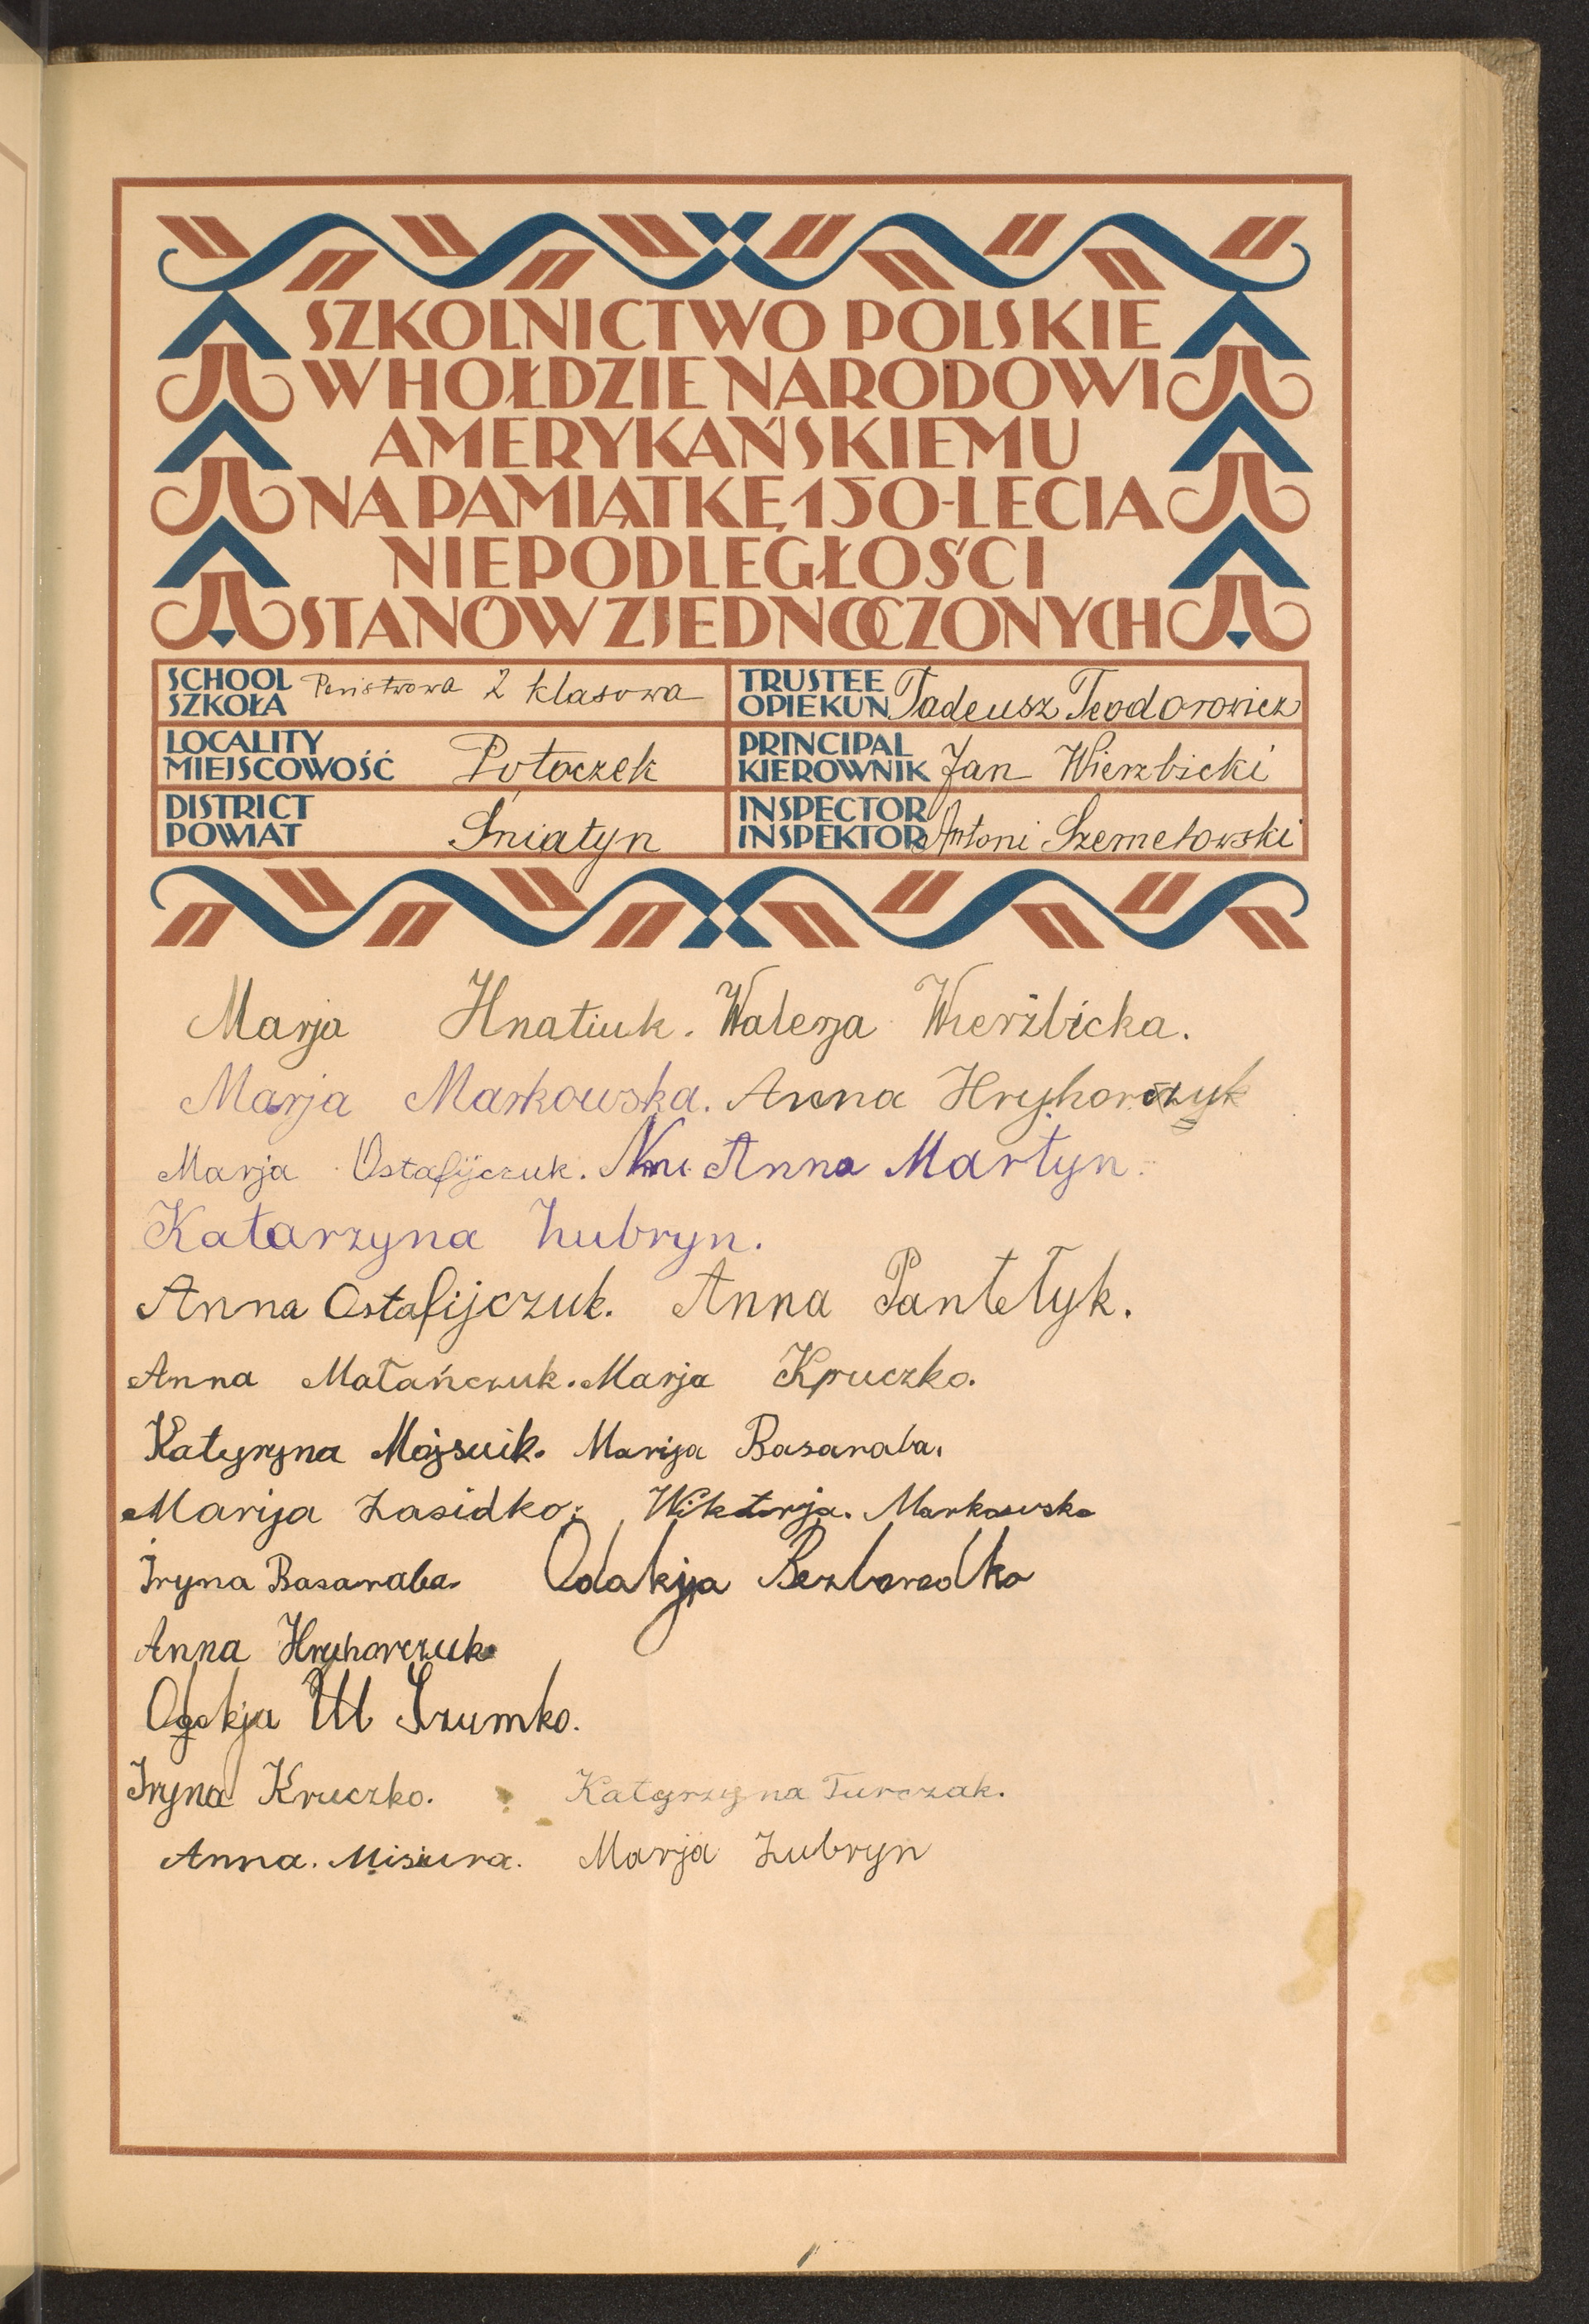 SZKOLNICTWO POLSKIE
W HOŁDZIE NARODOWI
AMERYKAŃSKIEMU
NA PAMIĄTKĘ 150-LECIA
NIEPODLEGŁOŚCI
STANÓW ZJEDNOCZONYCH
SCHOOL
SZKOŁA Państwowa 2 klasowa
TRUSTEE
OPIEKUN Tadeusz Teodorowicz
LOCALITY
MIEJSCOWOŚĆ Potoczek
PRINCIPAL
KIEROWNIK Jan Wierzbicki
DISTRICT
POWIAT Śniatyn
INSPECTOR
INSPEKTOR Antoni Szemelowski
Marja Hnatiuk. Walerja Wierzbicka.
Marja Markowska. Anna Hryhorczyk
Marja Ostafijczuk. Anna Martyn.
Katarzyna Zubryn.
Anna Ostafijczuk. Anna Pantełyk.
Anna Matańczuk. Marja Kruczko.
Katyryna Mojsuik. Marija Basaraba.
Marija Zasidko. Wiktorja. Markowska
Iryna Basaraba. Odakija Bezborodko
Anna Hryhorczuk
Szumko.
Iryna Kruczko. Katyrzyna Turczak.
Anna. Misiura. Marja Zubryn